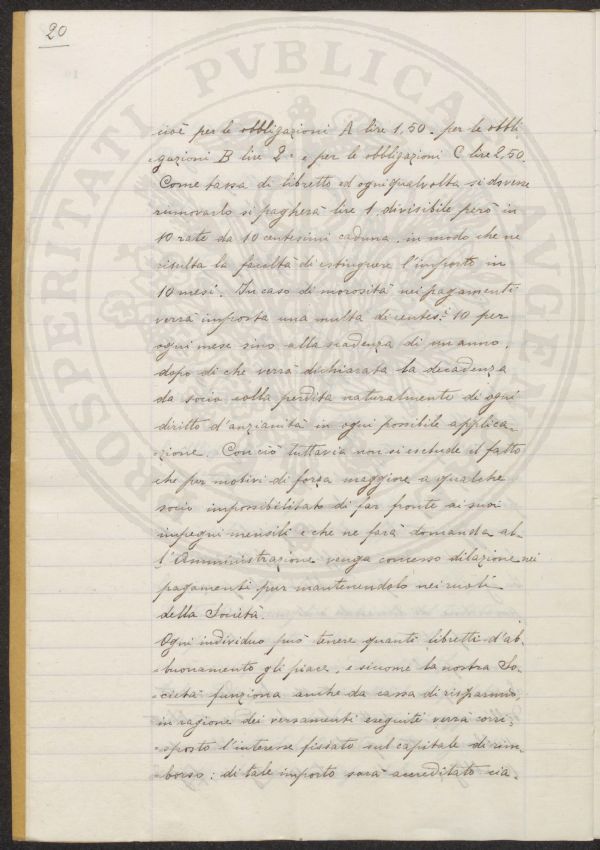 20
cioè per le obbligazioni A lire 1,50 - per le obbli-
gazioni B lire 2 - e per le obbligazioni C lire 2,50.
Come tassa di libretto ed ogniqualvolta si dovesse
rinnovarlo si pagherà lire 1 divisibile però in
10 rate da 10 centesimi caduna, in modo che ne
risulta la facoltà di estinguere l'importo in
10 mesi. In caso di morosità nei pagamenti
verrà imposta una multa di centes.i 10 per
ogni mese sino alla scadenza di un anno,
dopo di che verrà dichiarata la decadenza
da socio colla perdita naturalmente di ogni
diritto d'anzianità in ogni possibile applica-
-zione. Con ciò tuttavia non si esclude il fatto
che per motivi di forza maggiore a qualche
socio impossibilitato di far fronte ai suoi
impegni mensili e che ne farà domanda al-
l'Amministrazione venga concesso dilazione nei
pagamenti pur mantenendolo nei ruoli
della Società.
Ogni individuo può tenere quanti libretti d'ab-
-buonamento gli piace, e siccome la nostra So-
-cietà funziona anche da cassa di risparmio,
in ragione dei versamenti eseguiti verrà corri-
-sposto l'interesse fissato sul capitale di rim-
-borso: di tale importo sarà accreditato cia-
PROSPERITATI PVBLICAE AVGENDAE